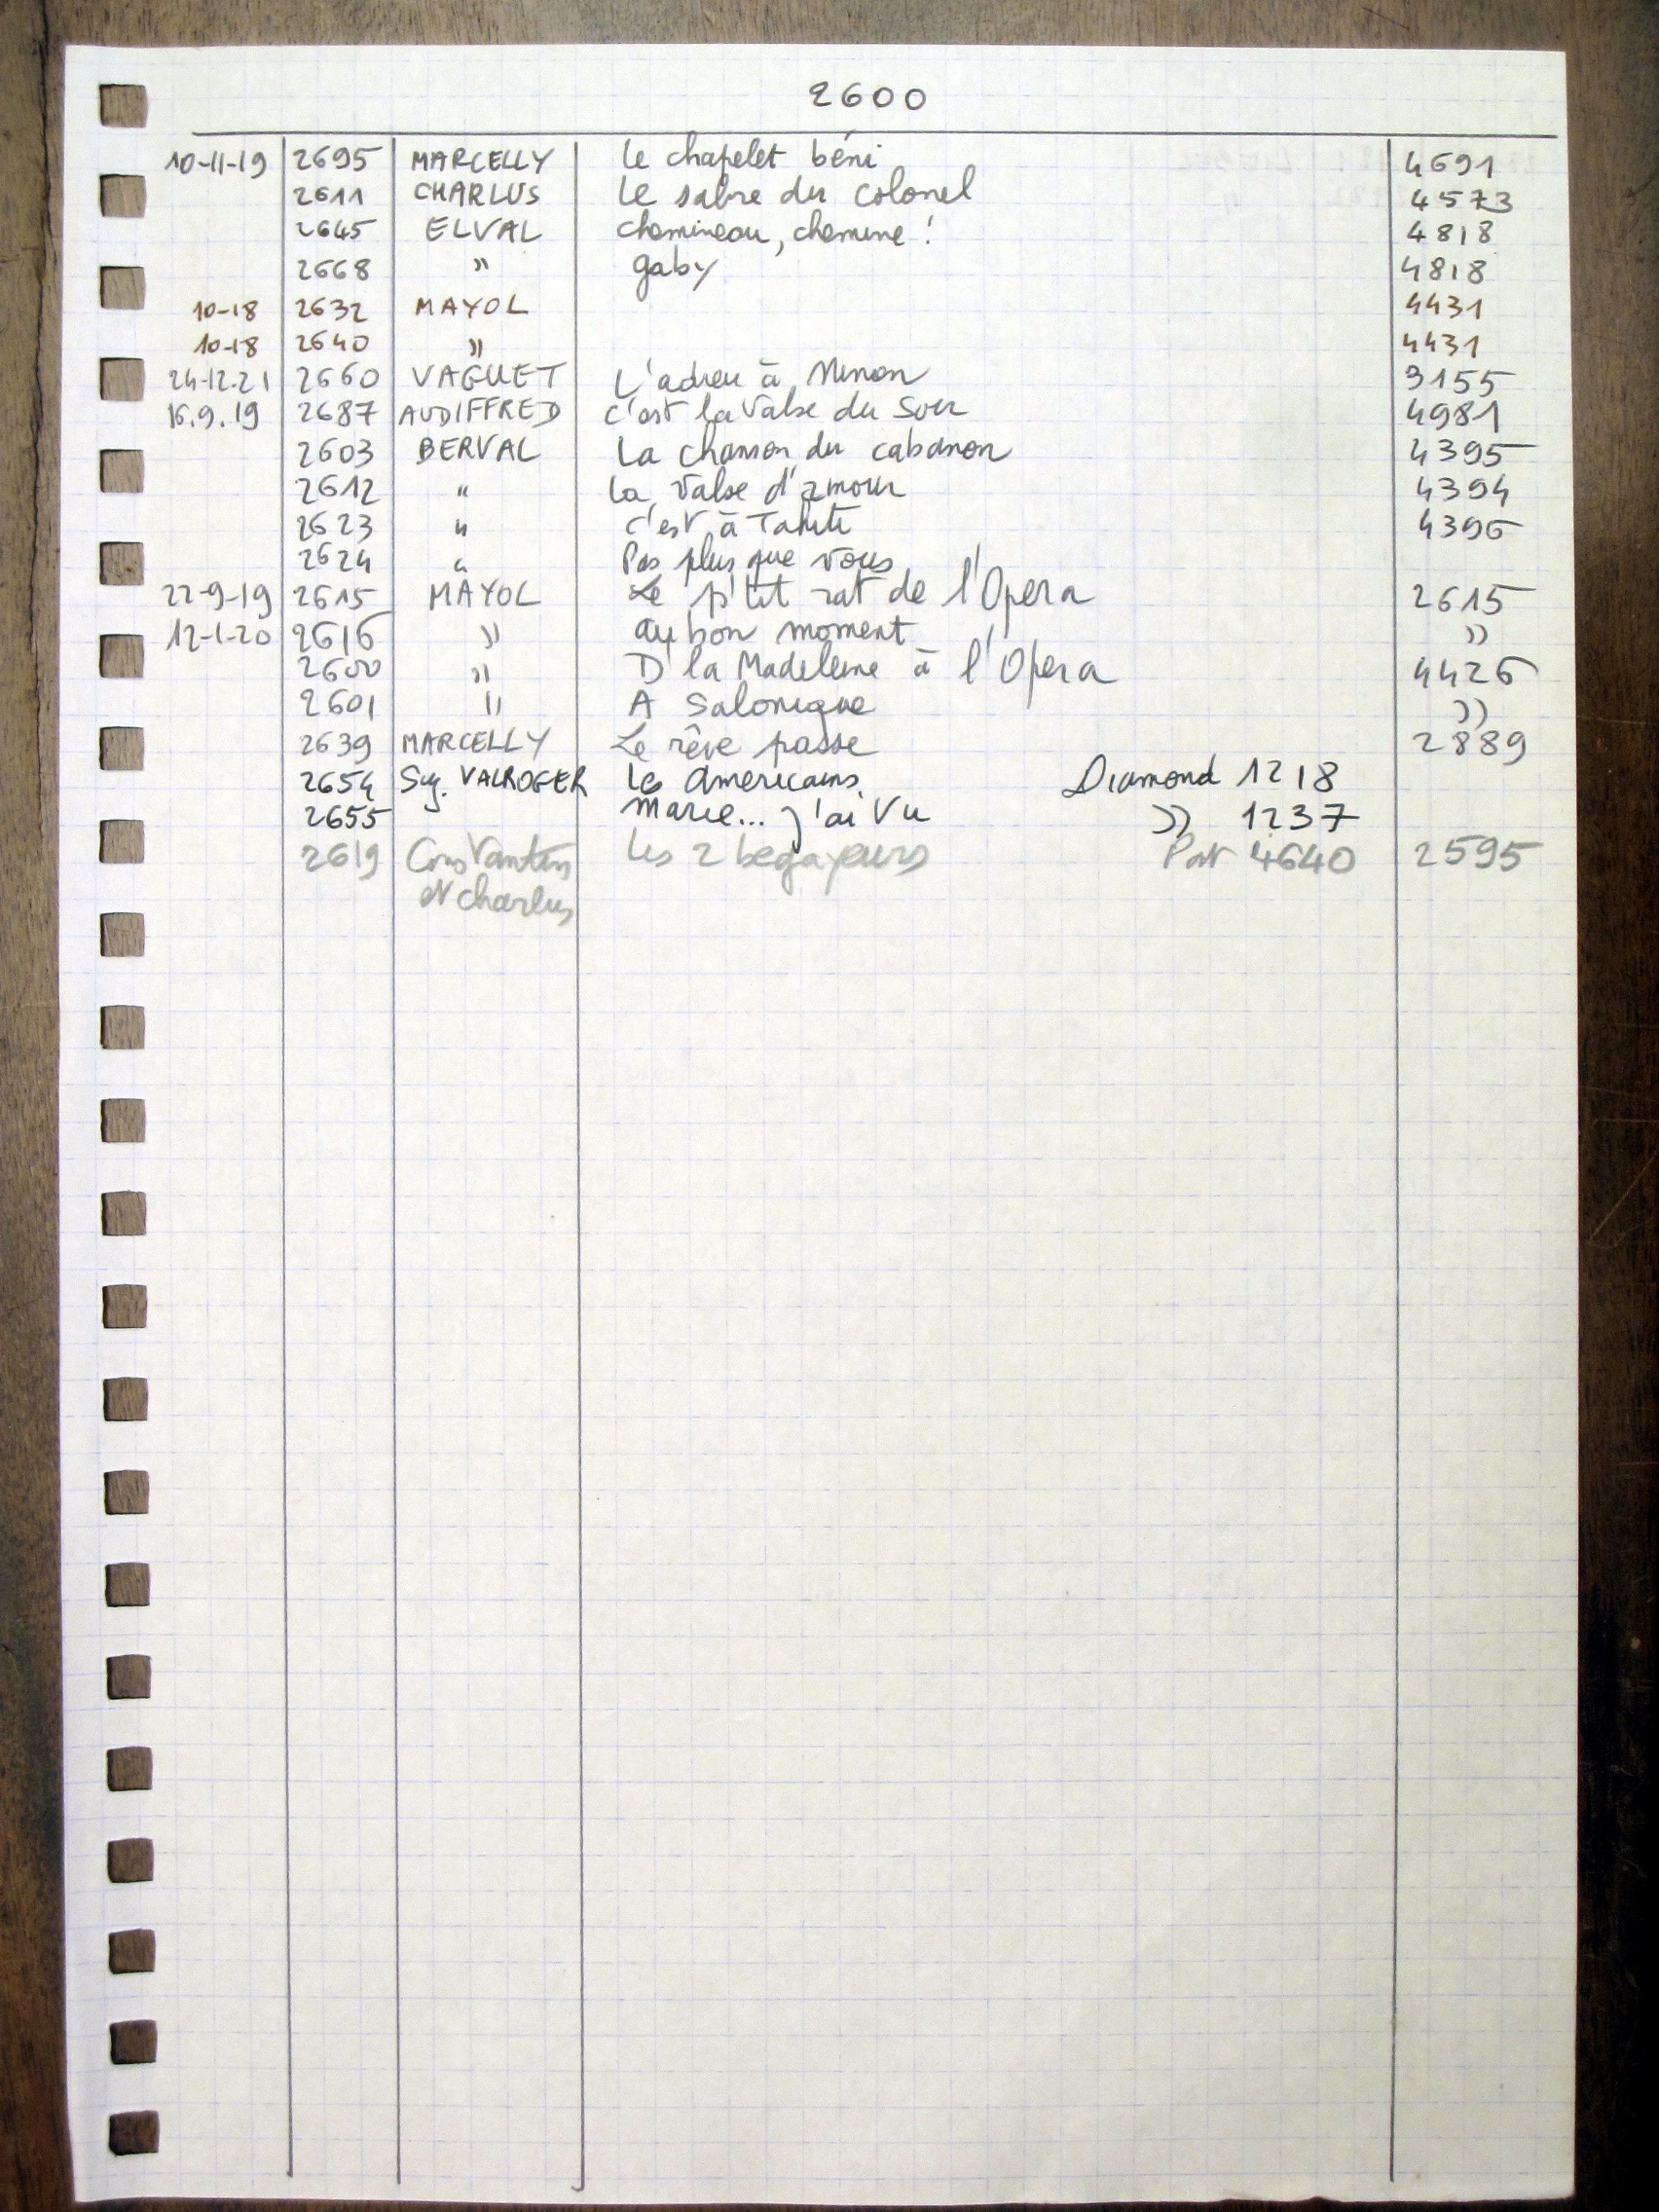 2600
10-11-19 2695 MARCELLY Le chapelet béni 4691
2611 CHARLUS Le sabre du Colonel 4573
2645 ELVAL chemineau, chemine ! 4818
2668 " gaby 4818
10-18 2632 MAYOL 4431
10-18 2640 " 4431
24-12-21 2660 VAGUET L'adieu à Ninon 3155
16.9.19 2687 AUDIFFRED C'est la Valse du Soir 4981
2603 BERVAL La chanson du cabanon 4395
2612 " La Valse d'amour 4394
2623 " C'est à Tahiti 4396
2624 " Pas plus que vous
22-9-19 2615 MAYOL Le p'tit rat de l'Opera 2615
12-1-20 2616 " au bon moment "
2600 " D' la Madeleine à l'Opera 4426
2601 " A Salonique "
2639 MARCELLY Le rêve passe 2889
2654 Suz. VALROGER les americains Diamond 1218
2655 Marie... j'ai Vu " 1237
2619 Constantin les 2 begayeurs Pat 4640 2595
et charlus